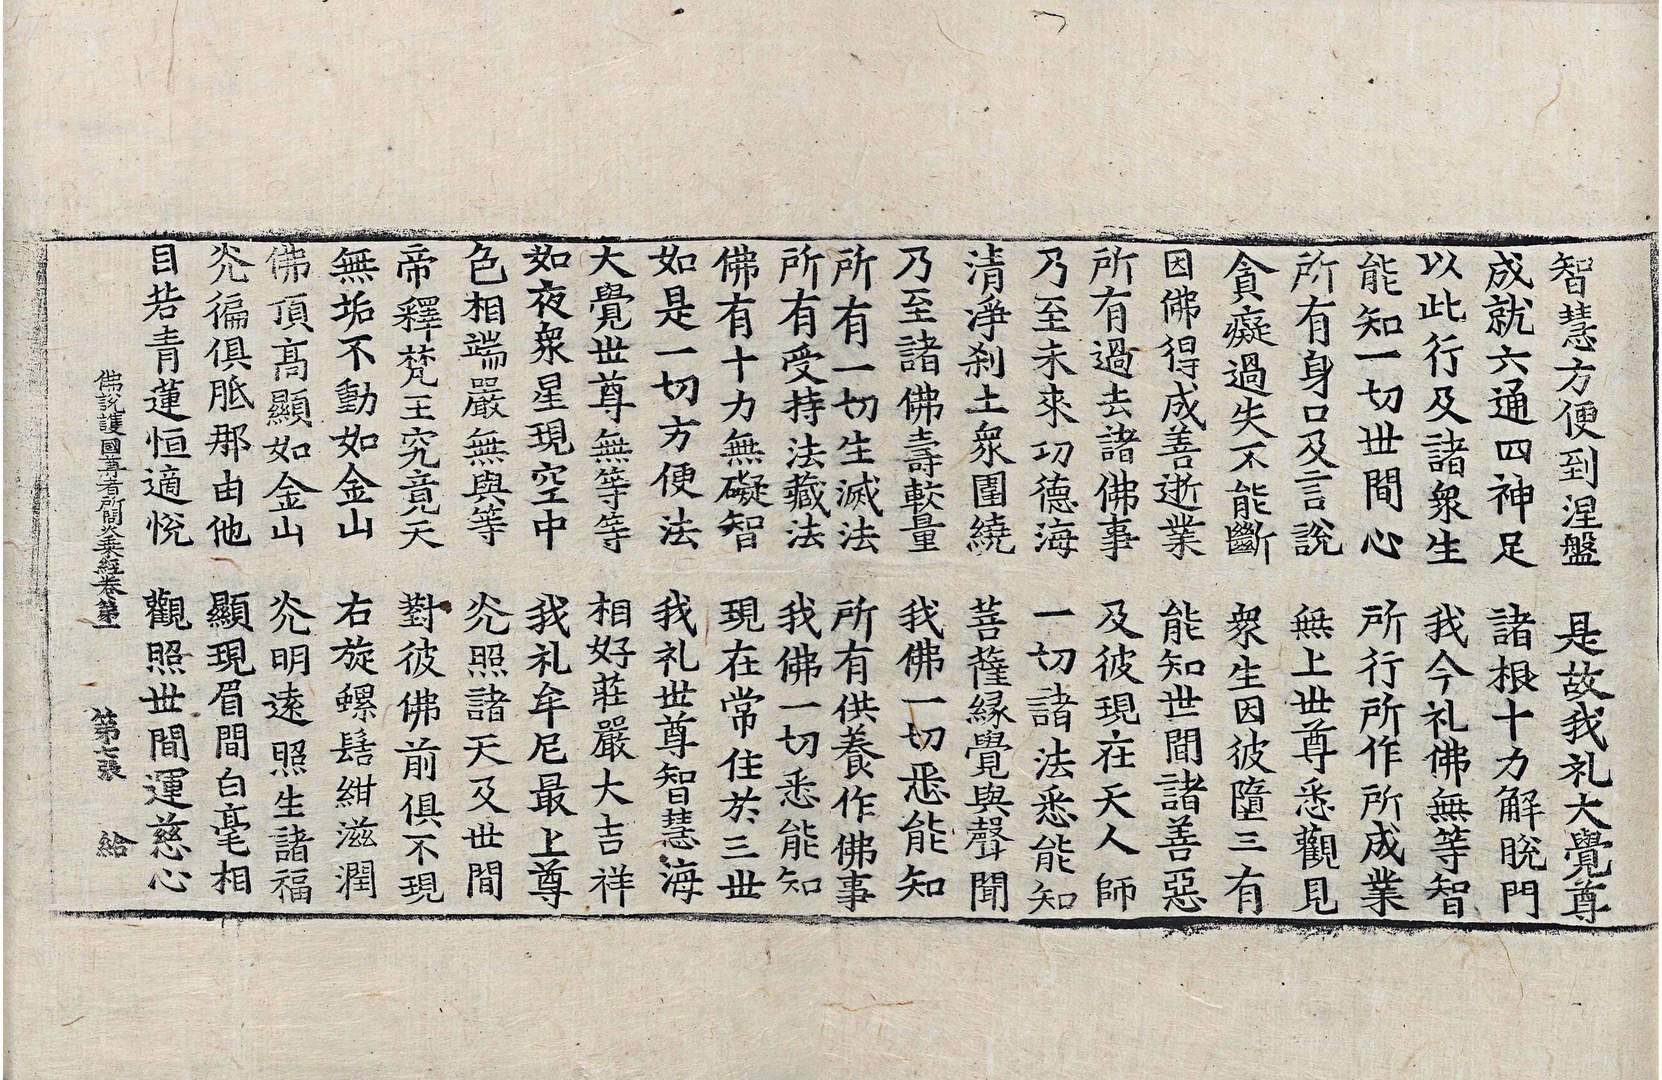 智慧方便到涅盤　是故我礼大覺尊
成就六通四神足　諸根十力解脫門
以此行及諸衆生　我今礼佛無等智
能知一切世間心　所行所作所成業
所有身口及言說　無上世尊悉觀見
貪癡過失不能斷　衆生因彼墮三有
因佛得成善逝業　能知世間諸善惡
所有過去諸佛事　及彼現在天人師
乃至未來功德海　一切諸法悉能知
清淨刹土衆圍繞　菩薩緣覺與聲聞
乃至諸佛壽較量　我佛一切悉能知
所有一切生滅法　所有供養作佛事
所有受持法藏法　我佛一切悉能知
佛有十力無礙智　現在常住於三世
如是一切方便法　我礼世尊智慧海
大覺世尊無等等　相好莊嚴大吉祥
如夜衆星現空中　我礼牟尼最上尊
色相端嚴無與等　光照諸天及世間
帝釋梵王究竟天　對彼佛前俱不現
無垢不動如金山　右旋螺髻紺滋潤
佛頂高顯如金山　光明遠照生諸福
光徧俱胝那由他　顯現眉間白毫相
目若青蓮恒適悅　觀照世間運慈心
佛說護國尊者所問大乘經卷第一　第七張　給